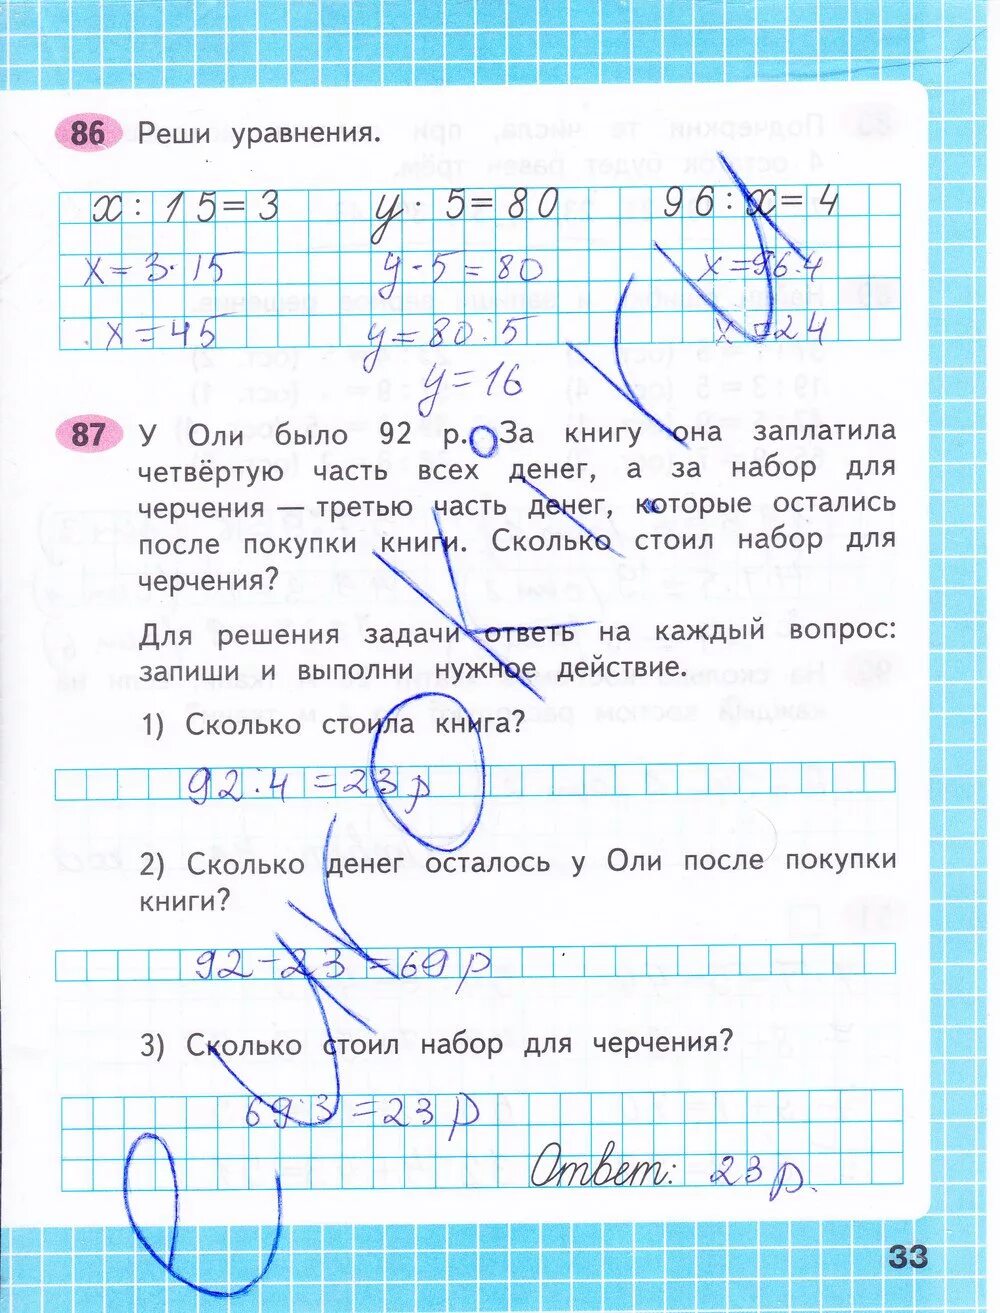 86 Реши уравнения.
x : 15 = 3 y · 5 = 80 96 : x = 4
x = 3 · 15 y · 5 = 80 x = 96 : 4
x = 45 y = 80 : 5 x = 24
y = 16
87 У Оли было 92 р. За книгу она заплатила
четвёртую часть всех денег, а за набор для
черчения — третью часть денег, которые остались
после покупки книги. Сколько стоил набор для
черчения?
Для решения задачи ответь на каждый вопрос:
запиши и выполни нужное действие.
1) Сколько стоила книга?
92 : 4 = 23 р
2) Сколько денег осталось у Оли после покупки
книги?
92 - 23 = 69 р
3) Сколько стоил набор для черчения?
69 : 3 = 23 р
Ответ: 23 р.
33